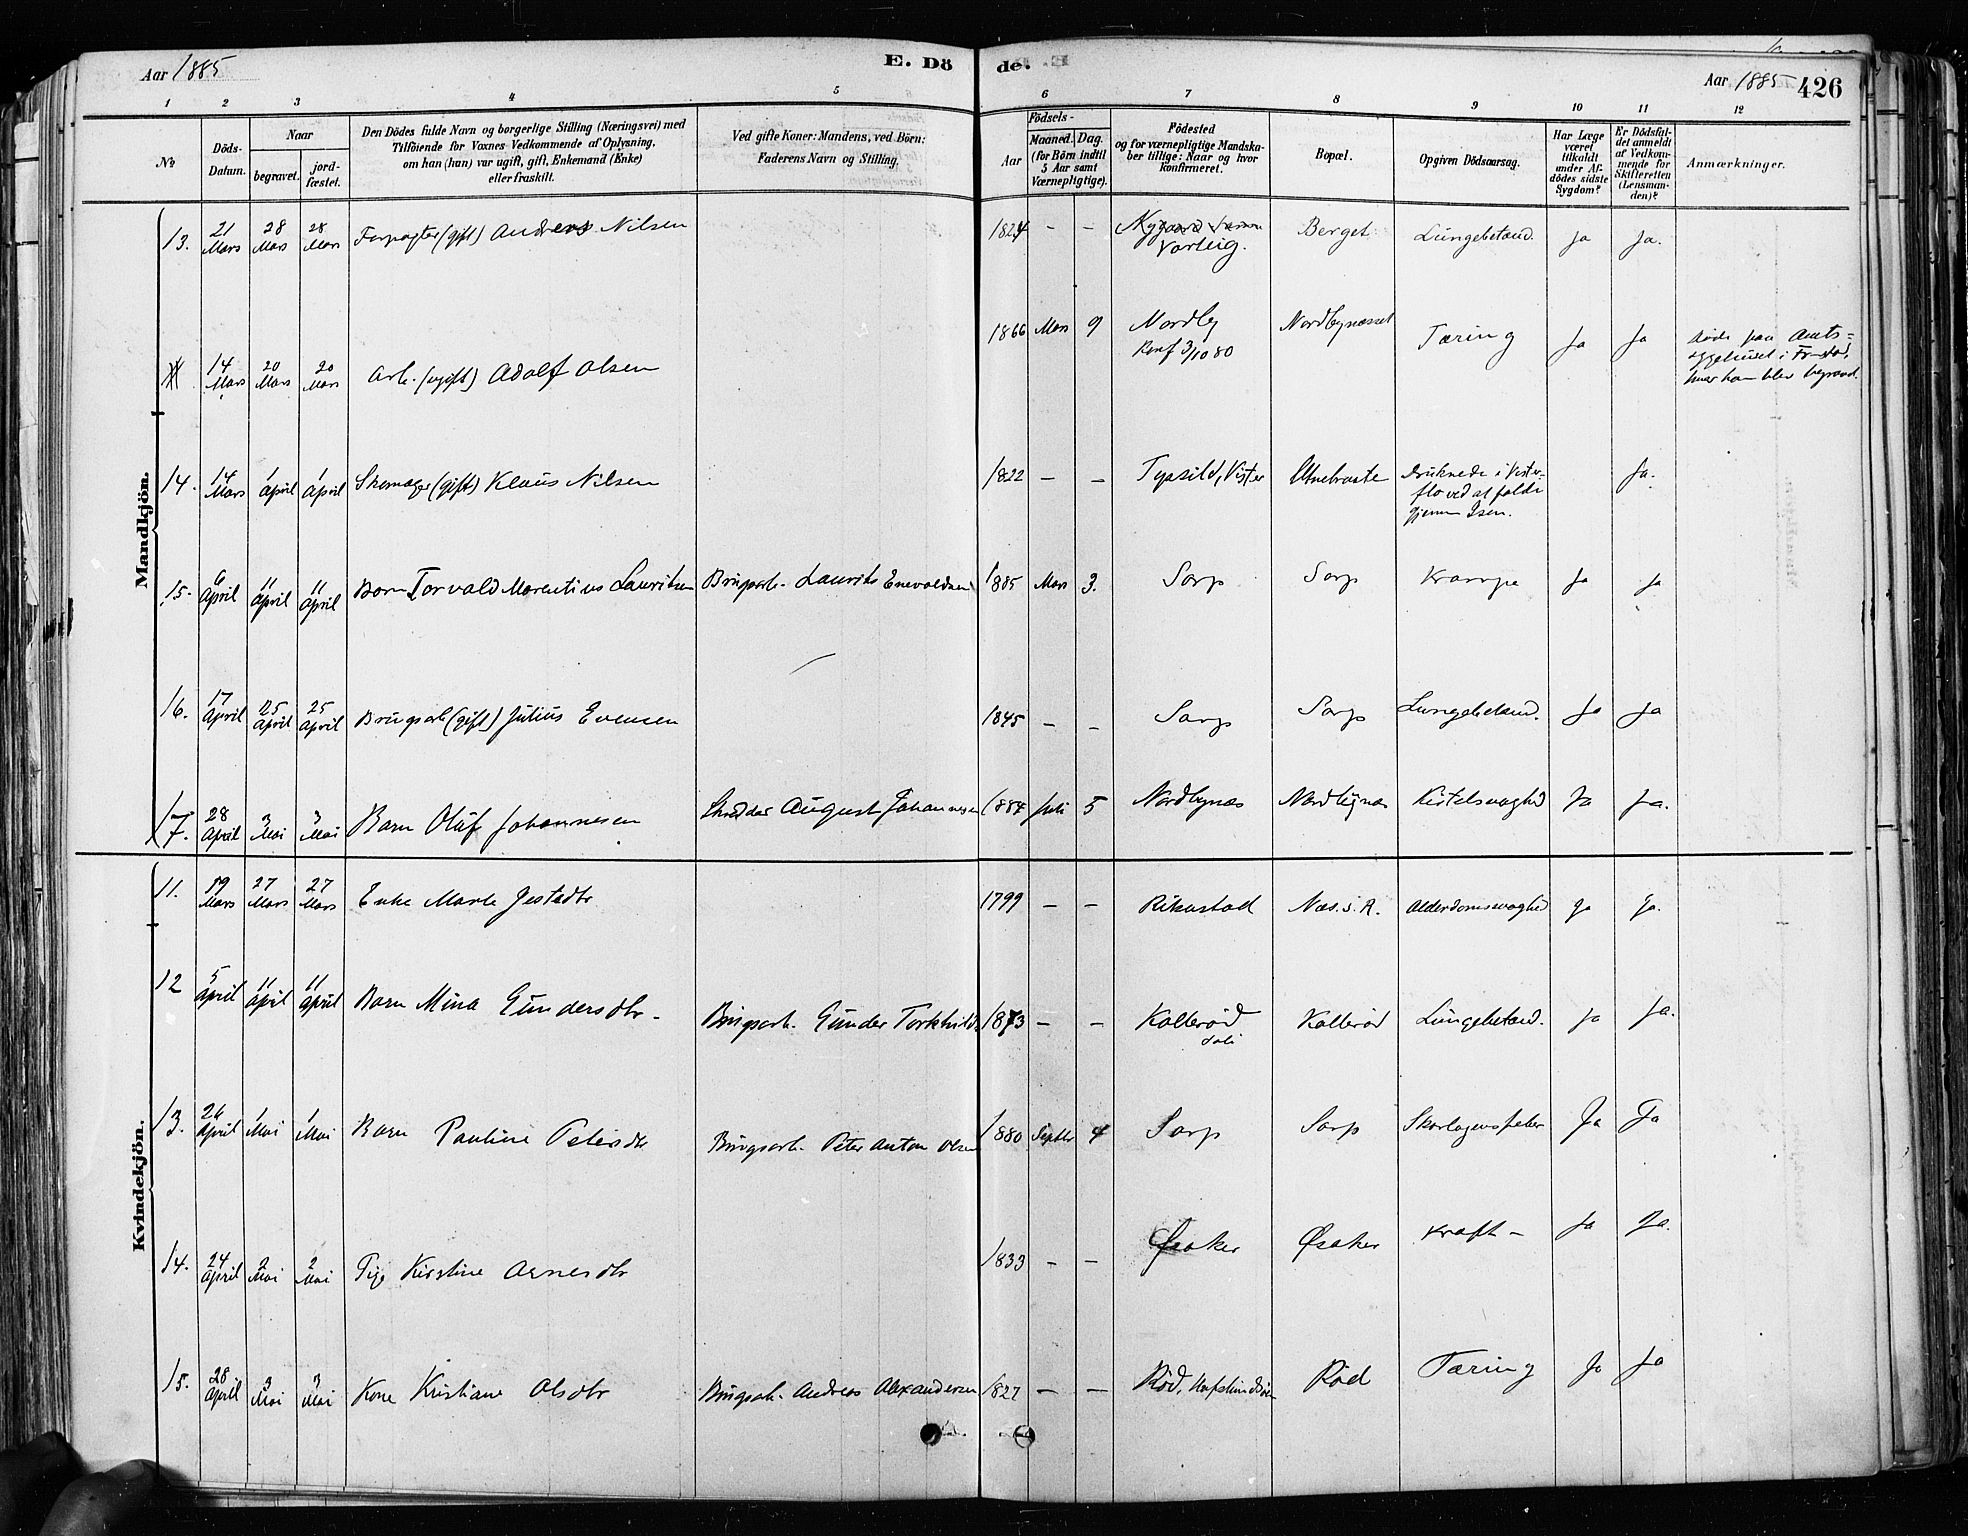 Aar 1885
E. Dö de.
Aar 1885 426
1 2 3 4 5 6 7 8 9 10 11 12
No
Döds-Datum.
Naar
begravet.
jord-fæstet.
Den Dödes fulde Navn og borgerlige Stilling (Næringsvei) med
Tilföiende for Voxnes Vedkommende af Oplysning,
om han (hun) var ugift, gift, Enkemand (Enke)
eller fraskilt.
Ved gifte Koner: Mandens, ved Börn:
Faderens Navn og Stilling.
Födsels-
Aar
Maaned. Dag.
(for Börn indtil
5 Aar samt
Værnepligtige).
Födested
og for værnepligtige Mandska-
ber tillige: Naar og hvor
konfirmeret.
Bopæl.
Opgiven Dödsaarsag.
Har Læge
været
tilkaldt
under Af-
dödes sidste
Sygdom?
Er Dödsfal-
det anmeldt
af Vedkom-
mende for
Skifteretten
(Lensman-
den)?
Anmærkninger.
Mandkjön.
13. 21 Mars 28 Mars 28 Mars Forpagter (gift) Andreas Nilsen 1824 – – Nygaard Varteig. Berget Lungebetænd. Ja Ja.
14 Mars 20 Mars 20 Mars Arb. (ugift) Adolf Olsen 1866 Mars 9 Nordby Konf 3/10 80 Nordbynæsset Tæring Ja Ja
döde paa Amts-
sygehuset i Fr.stad,
hvor han blev begravd.
14. 14 Mars 1 April 1 April Skomager (gift) Klaus Nilsen 1822 – – Typsild, Vister Druknede i Vister-
flo ved at falde
gjennem Isen. Ja.
15. 6 April 11 April 11 April Barn Torvald Marentius Lauritsen Brugsarb. Laurits Enevoldsen 1885 Mars 3. Sarp Sarp Krampe Ja Ja
16. 17 April 25 April 25 April Brugsarb (gift) Julius Evensen 1845 – – Sarp Sarp Lungebetænd. Ja Ja
17. 28 April 3 Mai 3 Mai Barn Oluf Johannesen Skrædder August Johannesen 1884 Juli 5 Nordbynæs Nordbynæs Kirtelsvaghed Ja Ja.
Kvindekjön.
11. 19 Mars 27 Mars 27 Mars Enke Marte Jestsdtr 1799 – – Rikustad Næs. s. R. Alderdomssvaghed Ja Ja.
12 5 April 11 April 11 April Barn Mina Gundersdtr. Brugsarb. Gunder Torkilds. 1873 – – Kallerød Kallerød Lungebetænd. Ja Ja.
13. 26 April 1 Mai 1 Mai Barn Pauline Petersdtr Brugsarb. Peter Anton Olsen 1880 Septbr 4 Sarp Sarp Skarlagensfeber Ja Ja
14. 24 April 2 Mai 2 Mai Pige Kirstine Arnesdtr 1833 – – Øsaker Øsaker Kræft – Ja Ja.
15. 28 April 3 Mai 3 Mai Kone Kristiane Olsdtr Brugsarb. Andreas Alexandersen 1827 – – Rød, Hafslundsøen Rød Tæring Ja Ja